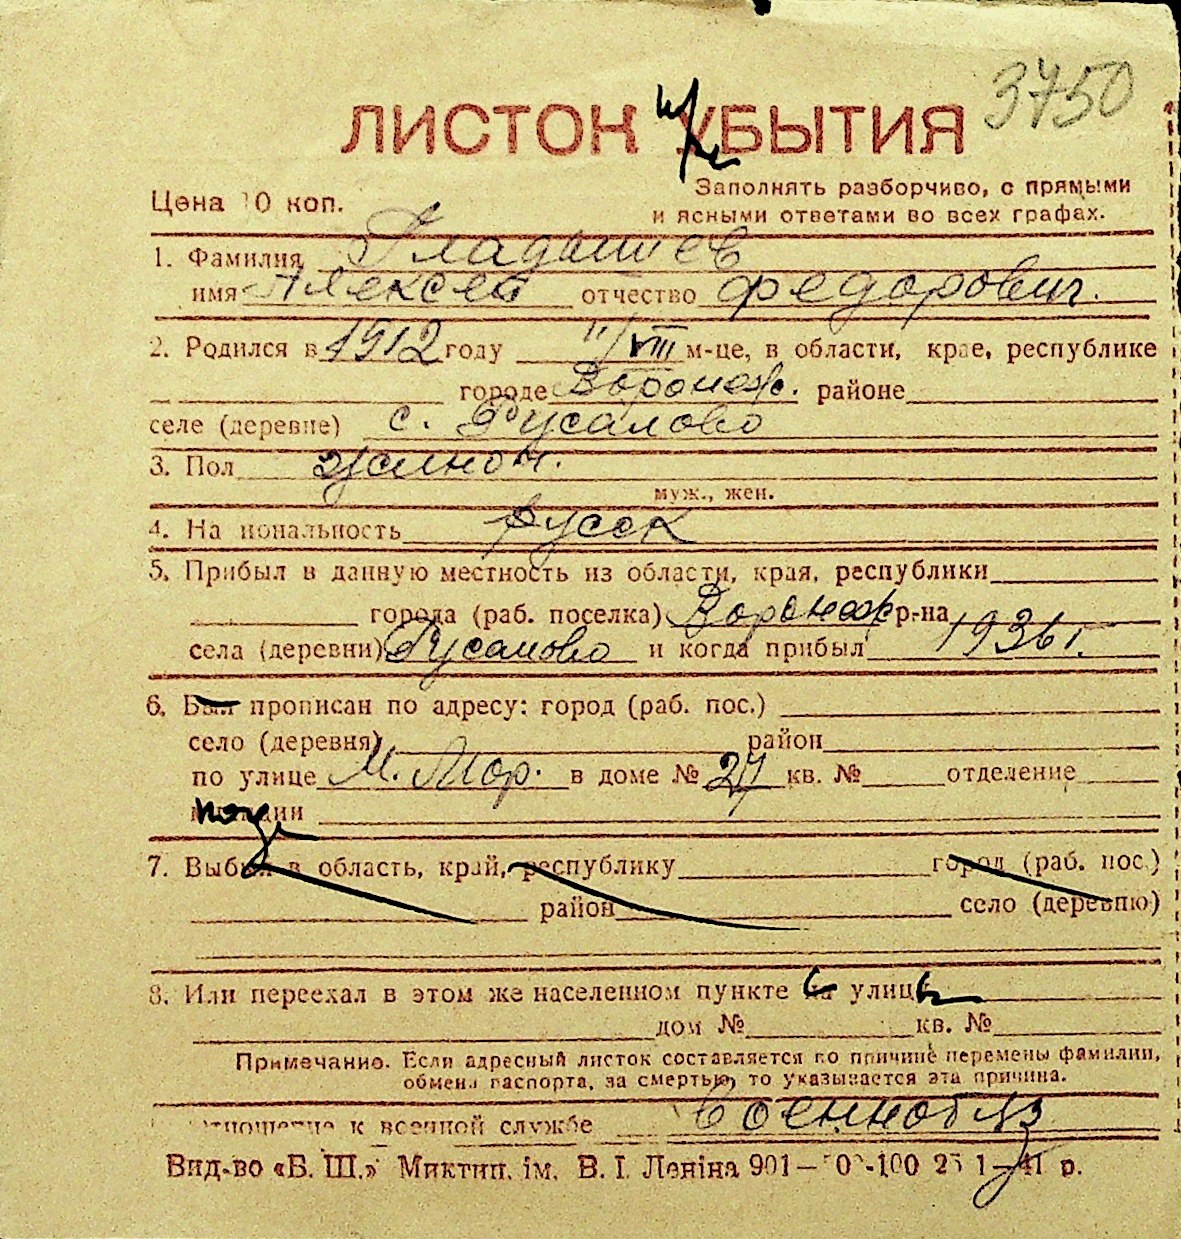 3750
ЛИСТОК УБЫТИЯ
Цена 10 коп.
Заполнять разборчиво, с прямыми
и ясными ответами во всех графах.
1. Фамилия Гладышев
имя Алексей отчество Федорович.
2. Родился в 1912 году 11/VIII м-це, в области, крае, республике
городе Воронеж. районе
селе (деревне) с. Русаново
3. Пол
муж., жен.
4. На иональность русск
5. Прибыл в данную местность из области, края, республики
города (раб. поселка) Воронеж р-на
села (деревни) Русаново и когда прибыл 1936 г.
6. Был прописан по адресу: город (раб. пос.)
село (деревня) район
по улице М. Мор. в доме № 27 кв. № отделение
7. Выбыл в область, край, республику город (раб. пос.)
район село (деревню)
8. Или переехал в этом же населенном пункте на улицу
дом № кв. №
Примечание. Если адресный листок составляется по причине перемены фамилии,
обмена паспорта, за смертью, то указывается эта причина.
отношение к военной службе военнообяз
Вид-во «Б. Ш.» Миктип. ім. В. І. Леніна 901— 100 1—41 р.